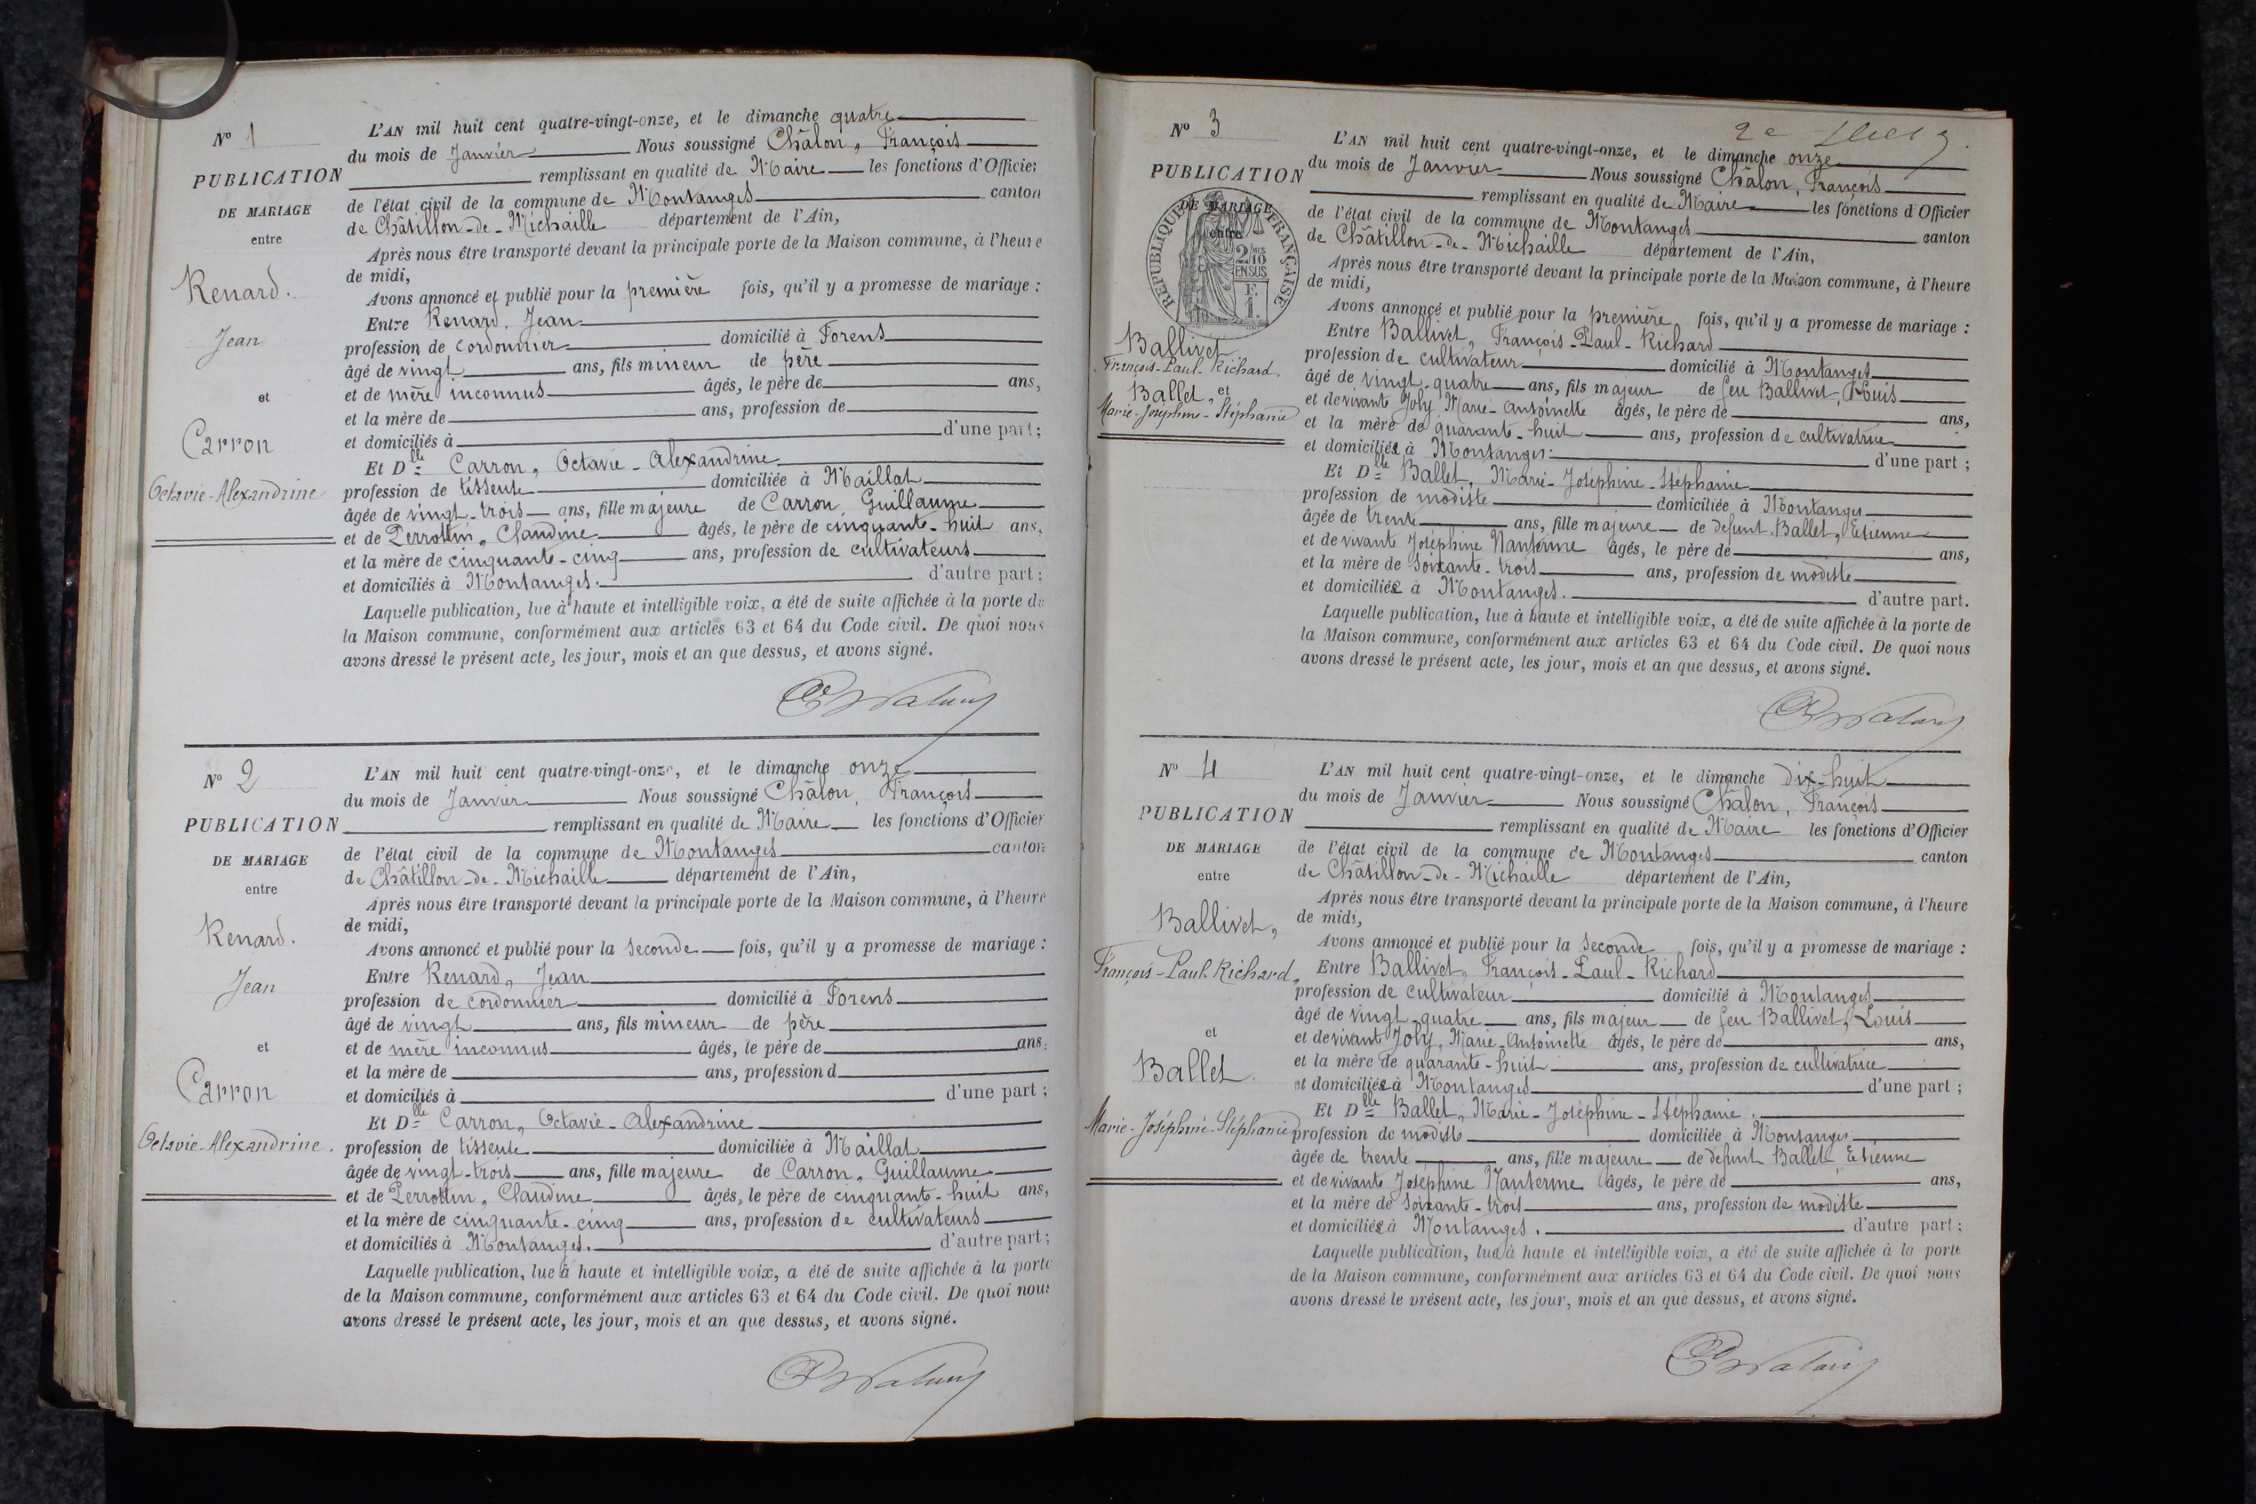 Nº 1
PUBLICATION
DE MARIAGE
entre
Renard.
Jean
et
Carron
Octavie-Alexandrine
L'AN mil huit cent quatre-vingt-onze, et le dimanche quatre
du mois de Janvier Nous soussigné Châlon, François
remplissant en qualité de Maire les fonctions d'Officier
de l'état civil de la commune de Montanges canton
de Châtillon-de-Michaille département de l'Ain,
Après nous être transporté devant la principale porte de la Maison commune, à l'heure
de midi,
Avons annoncé et publié pour la première fois, qu'il y a promesse de mariage :
Entre Renard, Jean
profession de cordonnier domicilié à Forens
âgé de vingt ans, fils mineur de père
et de mère inconnus âgés, le père de ans,
et la mère de ans, profession de
et domiciliés à d'une part ;
Et Dlle Carron, Octavie-Alexandrine
profession de tisseute domiciliée à Maillat
âgée de vingt-trois ans, fille majeure de Carron, Guillaume
et de Perrottin, Claudine âgés, le père de cinquante-huit ans,
et la mère de cinquante-cinq ans, profession de cultivateurs
et domiciliés à Montanges. d'autre part ;
Laquelle publication, lue à haute et intelligible voix, a été de suite affichée à la porte de
la Maison commune, conformément aux articles 63 et 64 du Code civil. De quoi nous
avons dressé le présent acte, les jour, mois et an que dessus, et avons signé.
Nº 2
PUBLICATION
DE MARIAGE
entre
Renard.
Jean
et
Carron
Octavie-Alexandrine.
L'AN mil huit cent quatre-vingt-onze, et le dimanche onze
du mois de Janvier Nous soussigné Châlon, François
remplissant en qualité de Maire les fonctions d'Officier
de l'état civil de la commune de Montanges canton
de Châtillon-de-Michaille département de l'Ain,
Après nous être transporté devant la principale porte de la Maison commune, à l'heure
de midi,
Avons annoncé et publié pour la seconde fois, qu'il y a promesse de mariage :
Entre Renard, Jean
profession de cordonnier domicilié à Forens
âgé de vingt ans, fils mineur de père
et de mère inconnus âgés, le père de ans,
et la mère de ans, profession d
et domiciliés à d'une part ;
Et Dlle Carron, Octavie-Alexandrine
profession de tisseute domiciliée à Maillat
âgée de vingt-trois ans, fille majeure de Carron, Guillaume
et de Perrottin, Claudine âgés, le père de cinquante-huit ans,
et la mère de cinquante-cinq ans, profession de cultivateurs
et domiciliés à Montanges. d'autre part ;
Laquelle publication, lue à haute et intelligible voix, a été de suite affichée à la porte
de la Maison commune, conformément aux articles 63 et 64 du Code civil. De quoi nous
avons dressé le présent acte, les jour, mois et an que dessus, et avons signé.
Nº 3
PUBLICATION
DE MARIAGE
entre
RÉPUBLIQUE FRANÇAISE
2/10
EN SUS
F.
1.
Ballivet
François-Paul-Richard,
et
Ballet,
Marie-Joséphine-Stéphanie
2e
L'AN mil huit cent quatre-vingt-onze, et le dimanche onze
du mois de Janvier Nous soussigné Châlon, François
remplissant en qualité de Maire les fonctions d'Officier
de l'état civil de la commune de Montanges canton
de Châtillon-de-Michaille département de l'Ain,
Après nous être transporté devant la principale porte de la Maison commune, à l'heure
de midi,
Avons annoncé et publié pour la première fois, qu'il y a promesse de mariage :
Entre Ballivet, François-Paul-Richard
profession de cultivateur domicilié à Montanges
âgé de vingt-quatre ans, fils majeur de feu Ballivet, Louis
et de vivante Joly Marie-Antoinette âgés, le père de ans,
et la mère de quarante-huit ans, profession de cultivatrice
et domiciliée à Montanges. d'une part ;
Et Dlle Ballet, Marie-Joséphine-Stéphanie
profession de modiste domiciliée à Montanges
âgée de trente ans, fille majeure de défunt Ballet, Etienne
et de vivante Joséphine Nanterme âgés, le père de ans,
et la mère de soixante-trois ans, profession de modiste
et domiciliée à Montanges. d'autre part.
Laquelle publication, lue à haute et intelligible voix, a été de suite affichée à la porte de
la Maison commune, conformément aux articles 63 et 64 du Code civil. De quoi nous
avons dressé le présent acte, les jour, mois et an que dessus, et avons signé.
Nº 4
PUBLICATION
DE MARIAGE
entre
Ballivet,
François-Paul-Richard,
et
Ballet.
Marie-Joséphine-Stéphanie
L'AN mil huit cent quatre-vingt-onze, et le dimanche dix-huit
du mois de Janvier Nous soussigné Châlon, François
remplissant en qualité de Maire les fonctions d'Officier
de l'état civil de la commune de Montanges canton
de Châtillon-de-Michaille département de l'Ain,
Après nous être transporté devant la principale porte de la Maison commune, à l'heure
de midi,
Avons annoncé et publié pour la seconde fois, qu'il y a promesse de mariage :
Entre Ballivet, François-Paul-Richard
profession de cultivateur domicilié à Montanges
âgé de vingt-quatre ans, fils majeur de feu Ballivet, Louis
et de vivant Joly, Marie-Antoinette âgés, le père de ans,
et la mère de quarante-huit ans, profession de cultivatrice
et domiciliée à Montanges d'une part ;
Et Dlle Ballet, Marie-Joséphine-Stéphanie.
profession de modiste domiciliée à Montanges
âgée de trente ans, fille majeure de défunt Ballet Etienne
et de vivante Joséphine Nanterme âgés, le père de ans,
et la mère de soixante-trois ans, profession de modiste
et domiciliée à Montanges. d'autre part ;
Laquelle publication, lue à haute et intelligible voix, a été de suite affichée à la porte
de la Maison commune, conformément aux articles 63 et 64 du Code civil. De quoi nous
avons dressé le présent acte, les jour, mois et an que dessus, et avons signé.